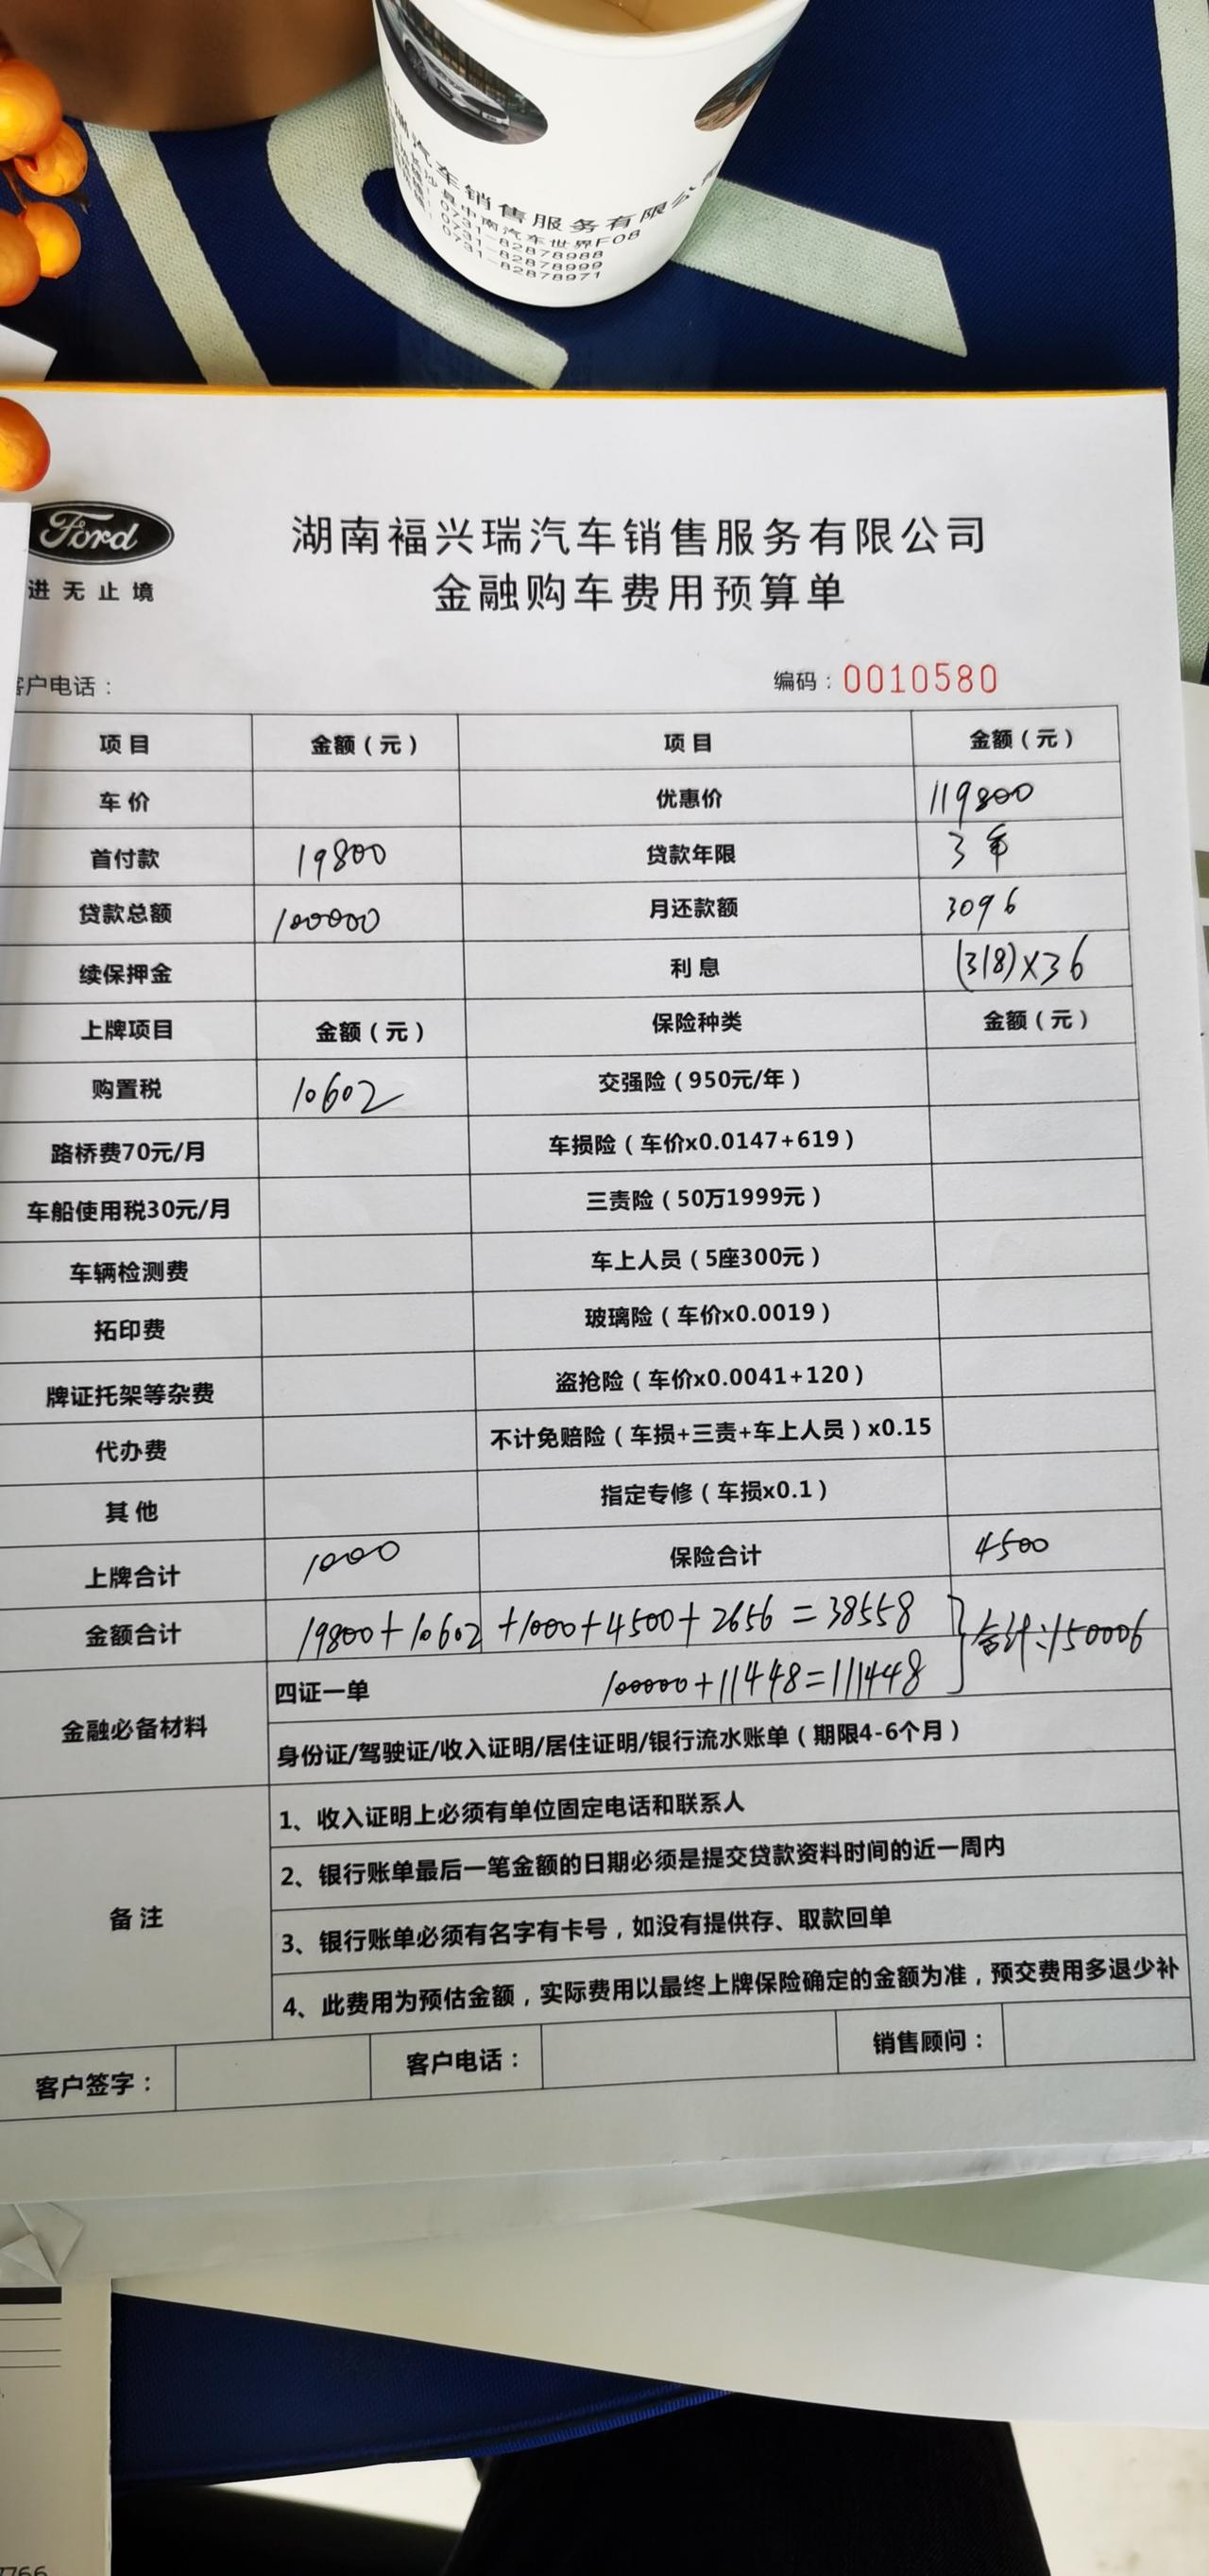 汽车销售服务有限公
县中南汽车世界F08
0731-82878988
0731-82878999
0731-82878971
Ford
进无止境
湖南福兴瑞汽车销售服务有限公司
金融购车费用预算单
客户电话：
编码：0010580
项目 金额（元） 项目 金额（元）
车价 优惠价 119800
首付款 19800 贷款年限 3年
贷款总额 100000 月还款额 3096
续保押金 利息 (318)×36
上牌项目 金额（元） 保险种类 金额（元）
购置税 10602 交强险（950元/年）
路桥费70元/月 车损险（车价x0.0147+619）
车船使用税30元/月 三责险（50万1999元）
车辆检测费 车上人员（5座300元）
拓印费 玻璃险（车价x0.0019）
牌证托架等杂费 盗抢险（车价x0.0041+120）
代办费 不计免赔险（车损+三责+车上人员）x0.15
其他 指定专修（车损x0.1）
上牌合计 1000 保险合计 4500
金额合计 19800+10602+1000+4500+2656=38558 合计:150006
金融必备材料 四证一单 100000+11448=111448
身份证/驾驶证/收入证明/居住证明/银行流水账单（期限4-6个月）
备注 1、收入证明上必须有单位固定电话和联系人
2、银行账单最后一笔金额的日期必须是提交贷款资料时间的近一周内
3、银行账单必须有名字有卡号，如没有提供存、取款回单
4、此费用为预估金额，实际费用以最终上牌保险确定的金额为准，预交费用多退少补
客户签字： 客户电话： 销售顾问：